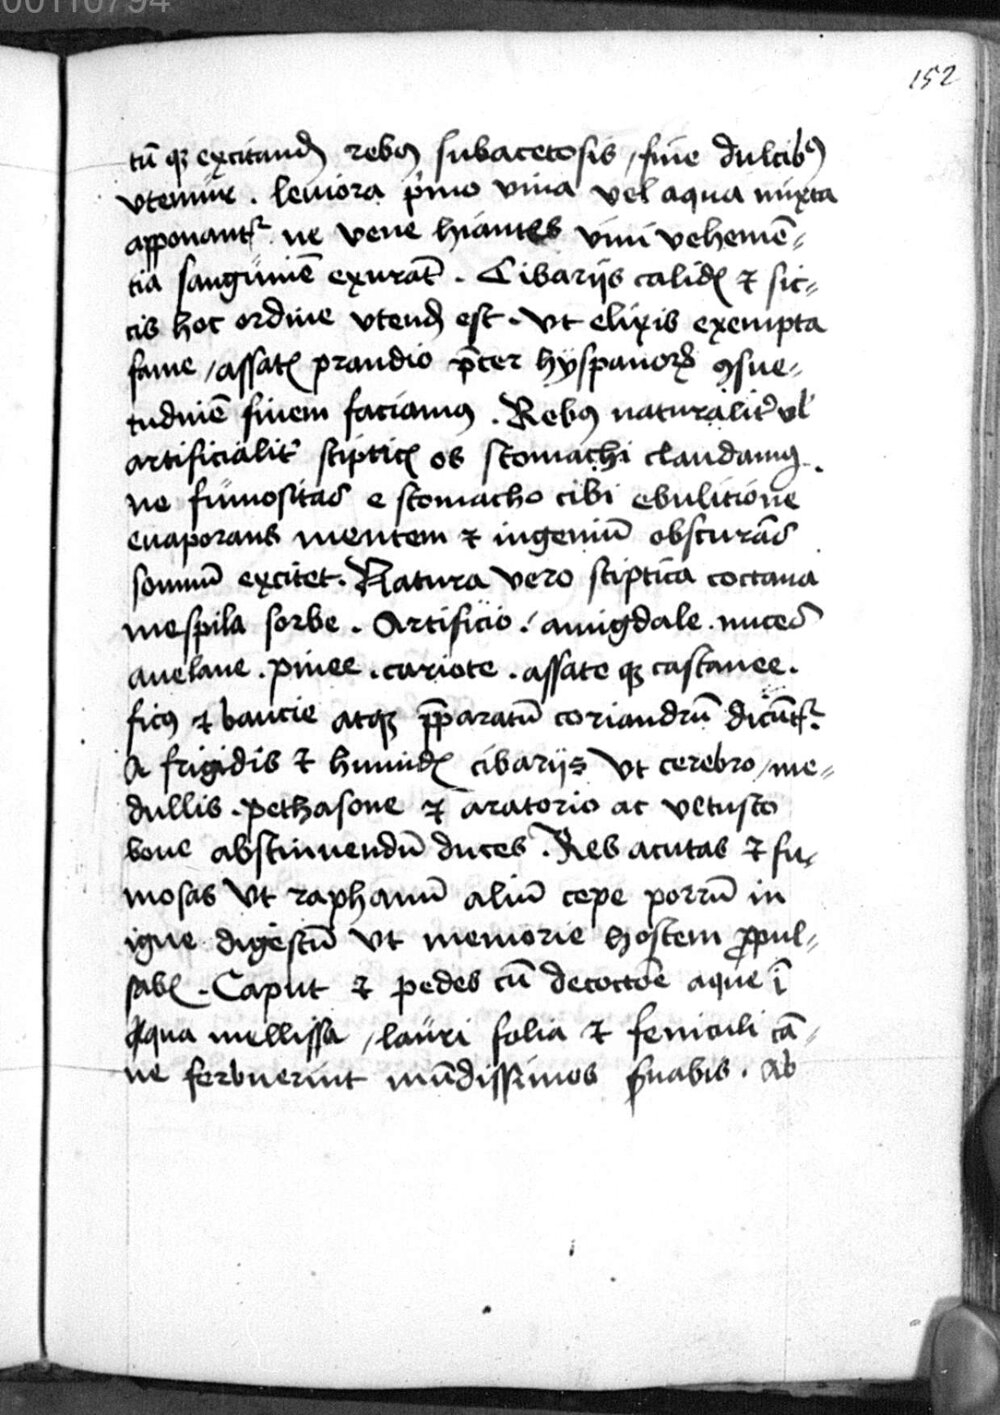 00110794
152
tū qꝫ excitand̄ rebꝰ subacetosis / siue dulcibꝰ
vtemur . leuiora p̄mo vina vel aqua mixta
apponant᷑ ne vene hiantes vini vehemē⸗
tia sanguinē exurāt . Cibarijs calidꝭ ⁊ sic⸗
cis hoc ordine vtend̄ est . Vt elixis exempta
fame / assatꝭ prandio p̄ter hyspanorꝝ ꝯsue⸗
tudinē finem faciamꝰ . Rebꝰ naturalit̄ vl̄
artificialit̄ stipticꝭ os stomachi claudamꝰ .
ne fumositas e stomacho cibi ebulitione
euaporans mentem ⁊ ingeniū obscurās
somnū excitet . Natura vero stiptica coctana
mespila sorbe . Artificio / amigdale . nuces
auelane . pinee . cariote . assate qꝫ castanee .
ficꝰ ⁊ baucie atqꝫ p̄paratū coriandrū dicūt᷑
A frigidis ⁊ humidꝭ cibarijs Vt cerebro / me⸗
dullis . pethasone ⁊ aratorio ac vetusto
boue abstinendū duces . Res acutas ⁊ fu⸗
mosas Vt raphanū aliū cepe porrū in
igne digestū Vt memorie hostem ꝓpul⸗
sabꝭ . Caput ⁊ pedes cū decoctōe aque ī
qua mellissa / lauri folia ⁊ feniculi cā⸗
ne ferbuerint mūdissimos s̄uabis . Ab